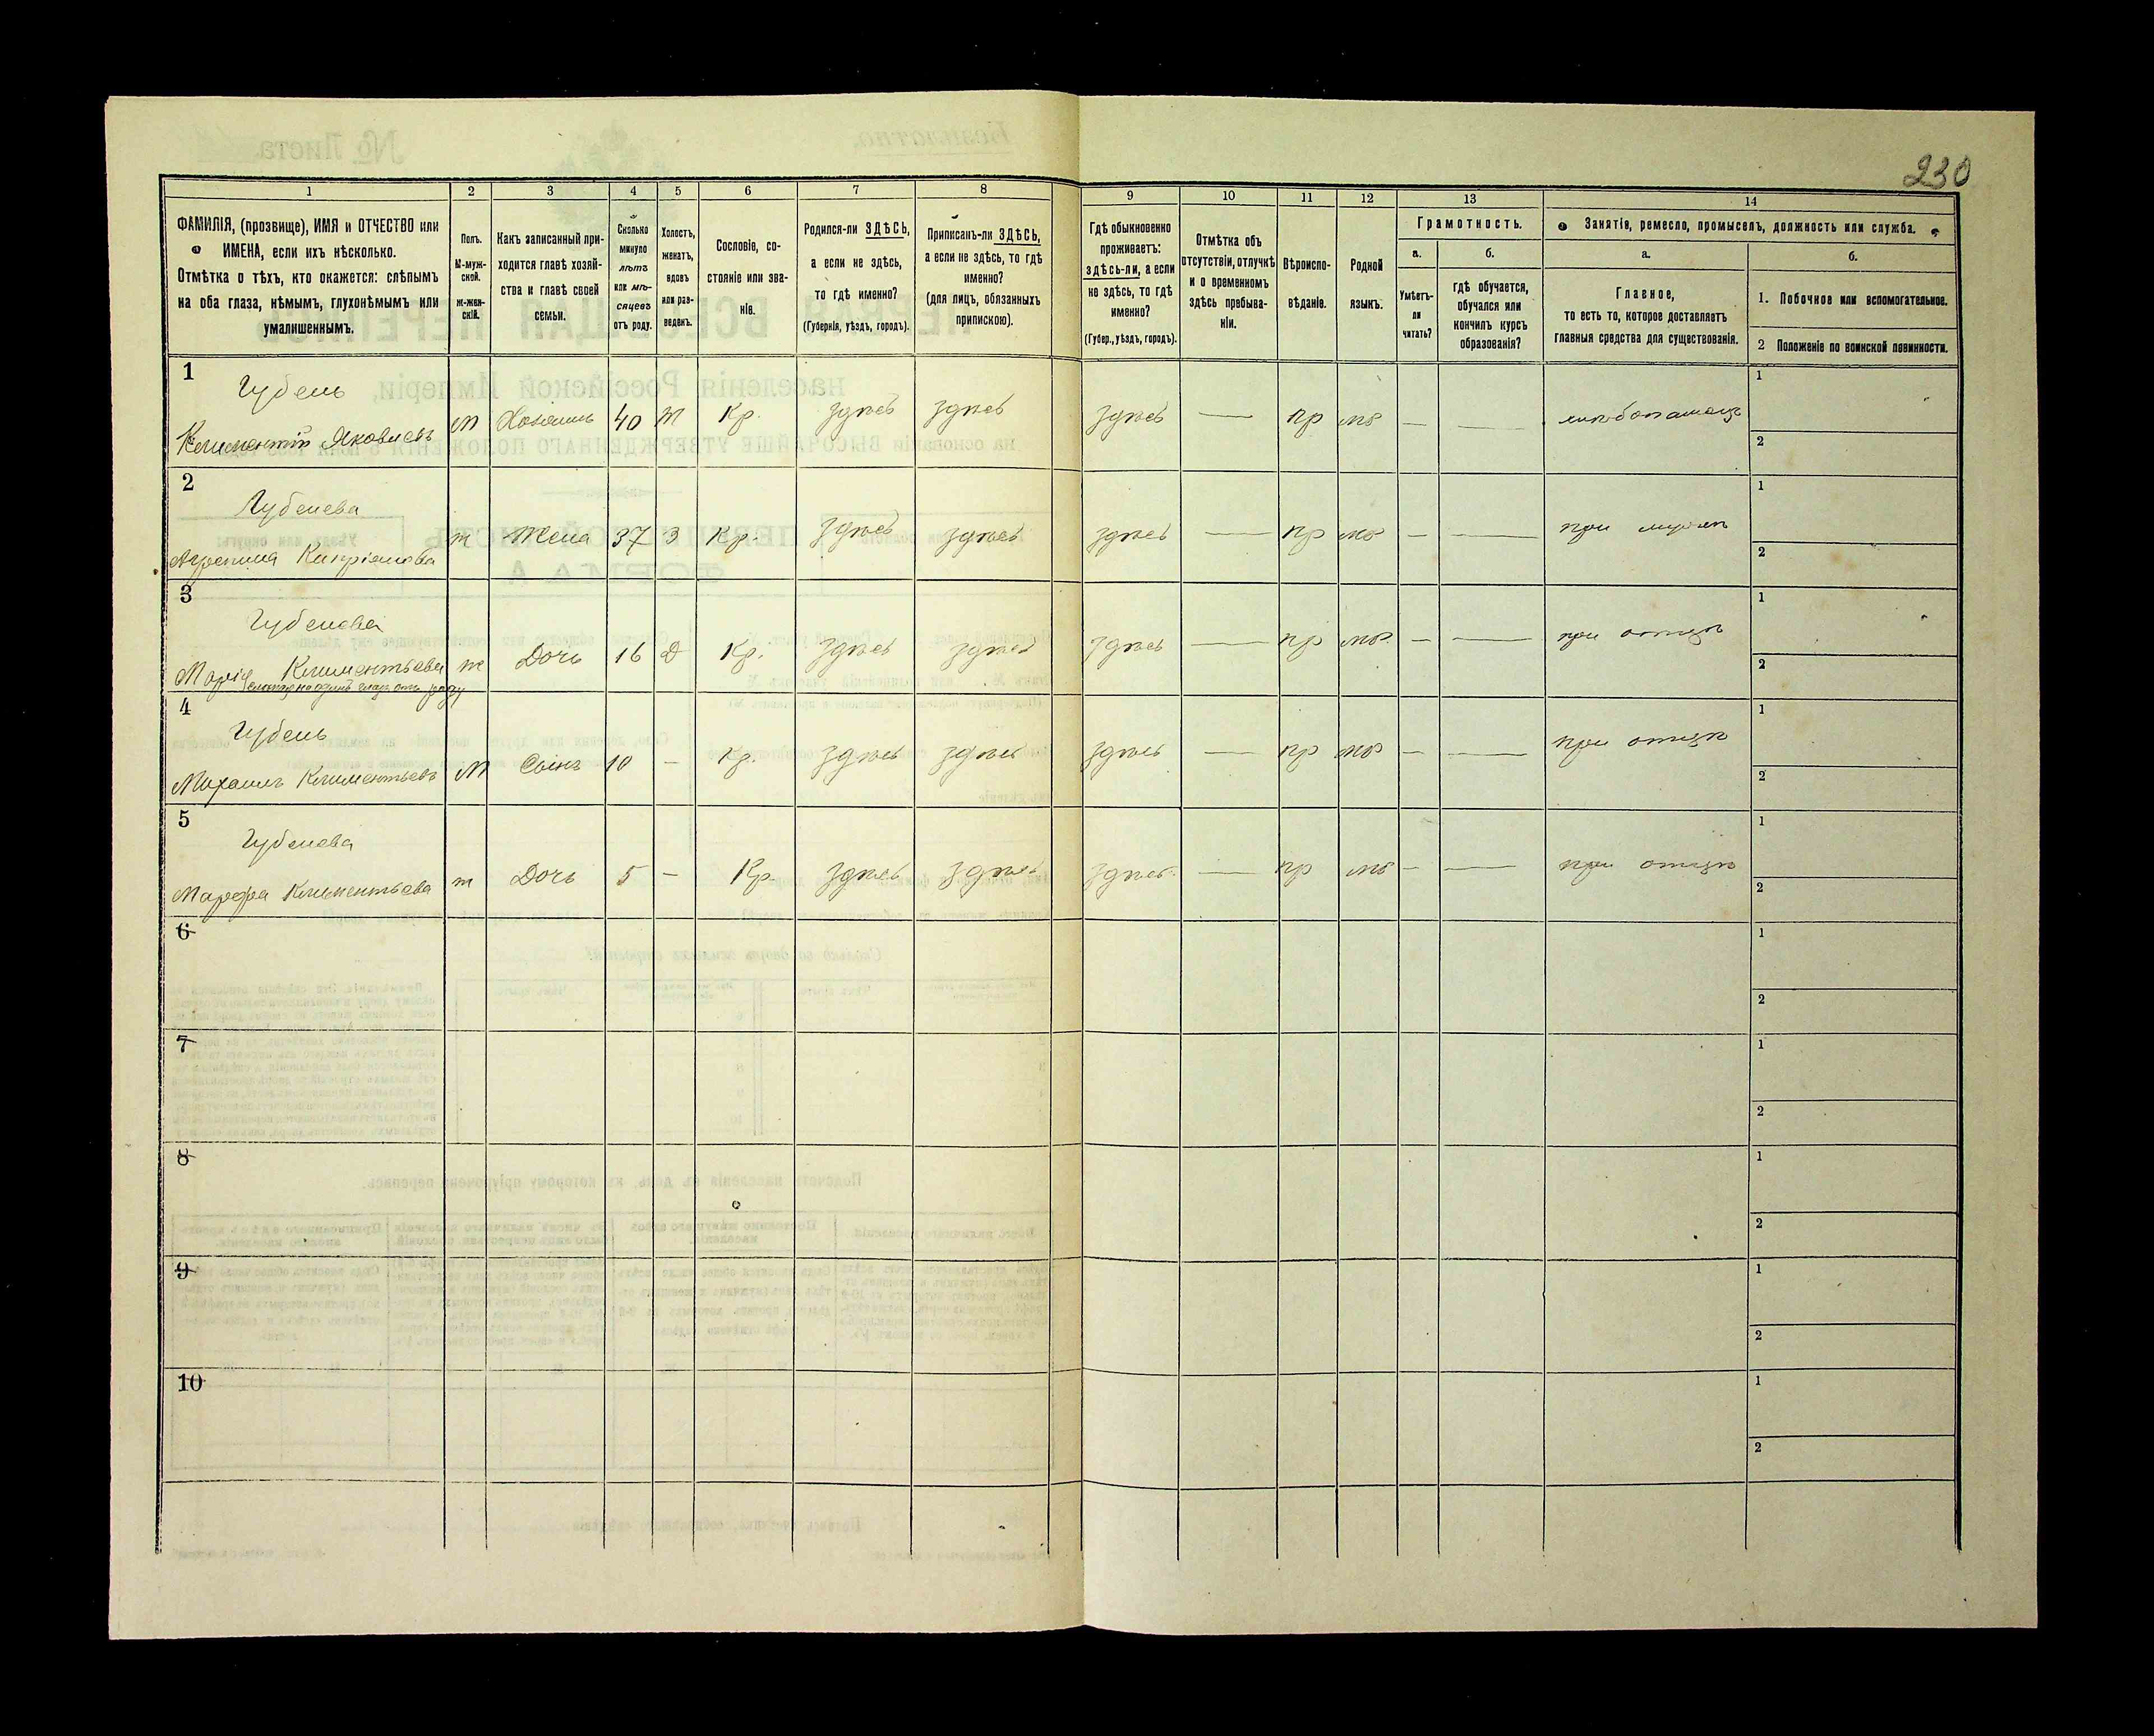 230
1 2 3 4 5 6 7 8 9 10 11 12 13 14
ФАМИЛІЯ, (прозвище), ИМЯ и ОТЧЕСТВО или
ИМЕНА, если ихъ нѣсколько.
Отмѣтка о тѣхъ, кто окажется: слѣпымъ
на оба глаза, нѣмымъ, глухонѣмымъ или
умалишеннымъ.
Полъ.
М-муж-
ской.
Ж-жен-
скій.
Какъ записанный при-
ходится главѣ хозяй-
ства и главѣ своей
семьи.
Сколько
минуло
лѣтъ
или мѣ-
сяцевъ
отъ роду.
Холостъ,
женатъ,
вдовъ
или раз-
веденъ.
Сословіе, со-
стояніе или зва-
ніе.
Родился-ли ЗДѢСЬ,
а если не здѣсь,
то гдѣ именно?
(Губернія, уѣздъ, городъ).
Приписанъ-ли ЗДѢСЬ,
а если не здѣсь, то гдѣ
именно?
(для лицъ, обязанныхъ
припискою).
Гдѣ обыкновенно
проживаетъ:
здѣсь-ли, а если
не здѣсь, то гдѣ
именно?
(Губер., уѣздъ, городъ).
Отмѣтка объ
отсутствіи, отлучкѣ
и о временномъ
здѣсь пребыва-
ніи.
Вѣроиспо-
вѣданіе.
Родной
языкъ.
Грамотность.
а.
Умѣетъ-
ли
читать?
б.
гдѣ обучается,
обучался или
кончилъ курсъ
образованія?
Занятіе, ремесло, промыселъ, должность или служба.
а.
Главное,
то есть то, которое доставляетъ
главныя средства для существованія.
б.
1. Побочное или вспомогательное.
2 Положеніе по воинской повинности.
1
Губень
Климентій Яковлевъ М Хозяинъ 40 Ж Кр. здѣсь здѣсь здѣсь — пр мр — — хлѣбопашецъ
1
2
2
Губенева
Агрепина Кипріянова ж Жена 37 З Кр. здѣсь здѣсь здѣсь — пр мр — — при мужѣ
1
2
3
Губенева
Марія Климентьева ж Дочь 16 Д Кр. здѣсь здѣсь здѣсь — пр мр. — — при отцѣ
слѣпая на одинъ глазъ отъ роду
1
2
4
Губень
Михаилъ Климентьевъ М Сынъ 10 — Кр. здѣсь здѣсь здѣсь — пр мр — — при отцѣ
1
2
5
Губенева
Марфа Климентьева ж Дочь 5 — Кр. здѣсь здѣсь здѣсь — пр мр — — при отцѣ
1
2
6
1
2
7
1
2
8
1
2
9
1
2
10
1
2